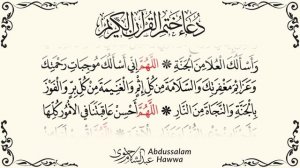 دُعَاءُ خَتْمِ الْقُرْآنِ الْكَرِيمِ
وَأَسْأَلُكَ الْعُلَا مِنَ الْجَنَّةِ * اللَّهُمَّ إِنِّي أَسْأَلُكَ مُوجِبَاتِ رَحْمَتِكَ
وَعَزَائِمَ مَغْفِرَتِكَ وَالسَّلَامَةَ مِنْ كُلِّ إِثْمٍ وَالْغَنِيمَةَ مِنْ كُلِّ بِرٍّ وَالْفَوْزَ
بِالْجَنَّةِ وَالنَّجَاةَ مِنَ النَّارِ * اللَّهُمَّ أَحْسِنْ عَاقِبَتَنَا فِي الْأُمُورِ كُلِّهَا
Abdussalam
Hawwa